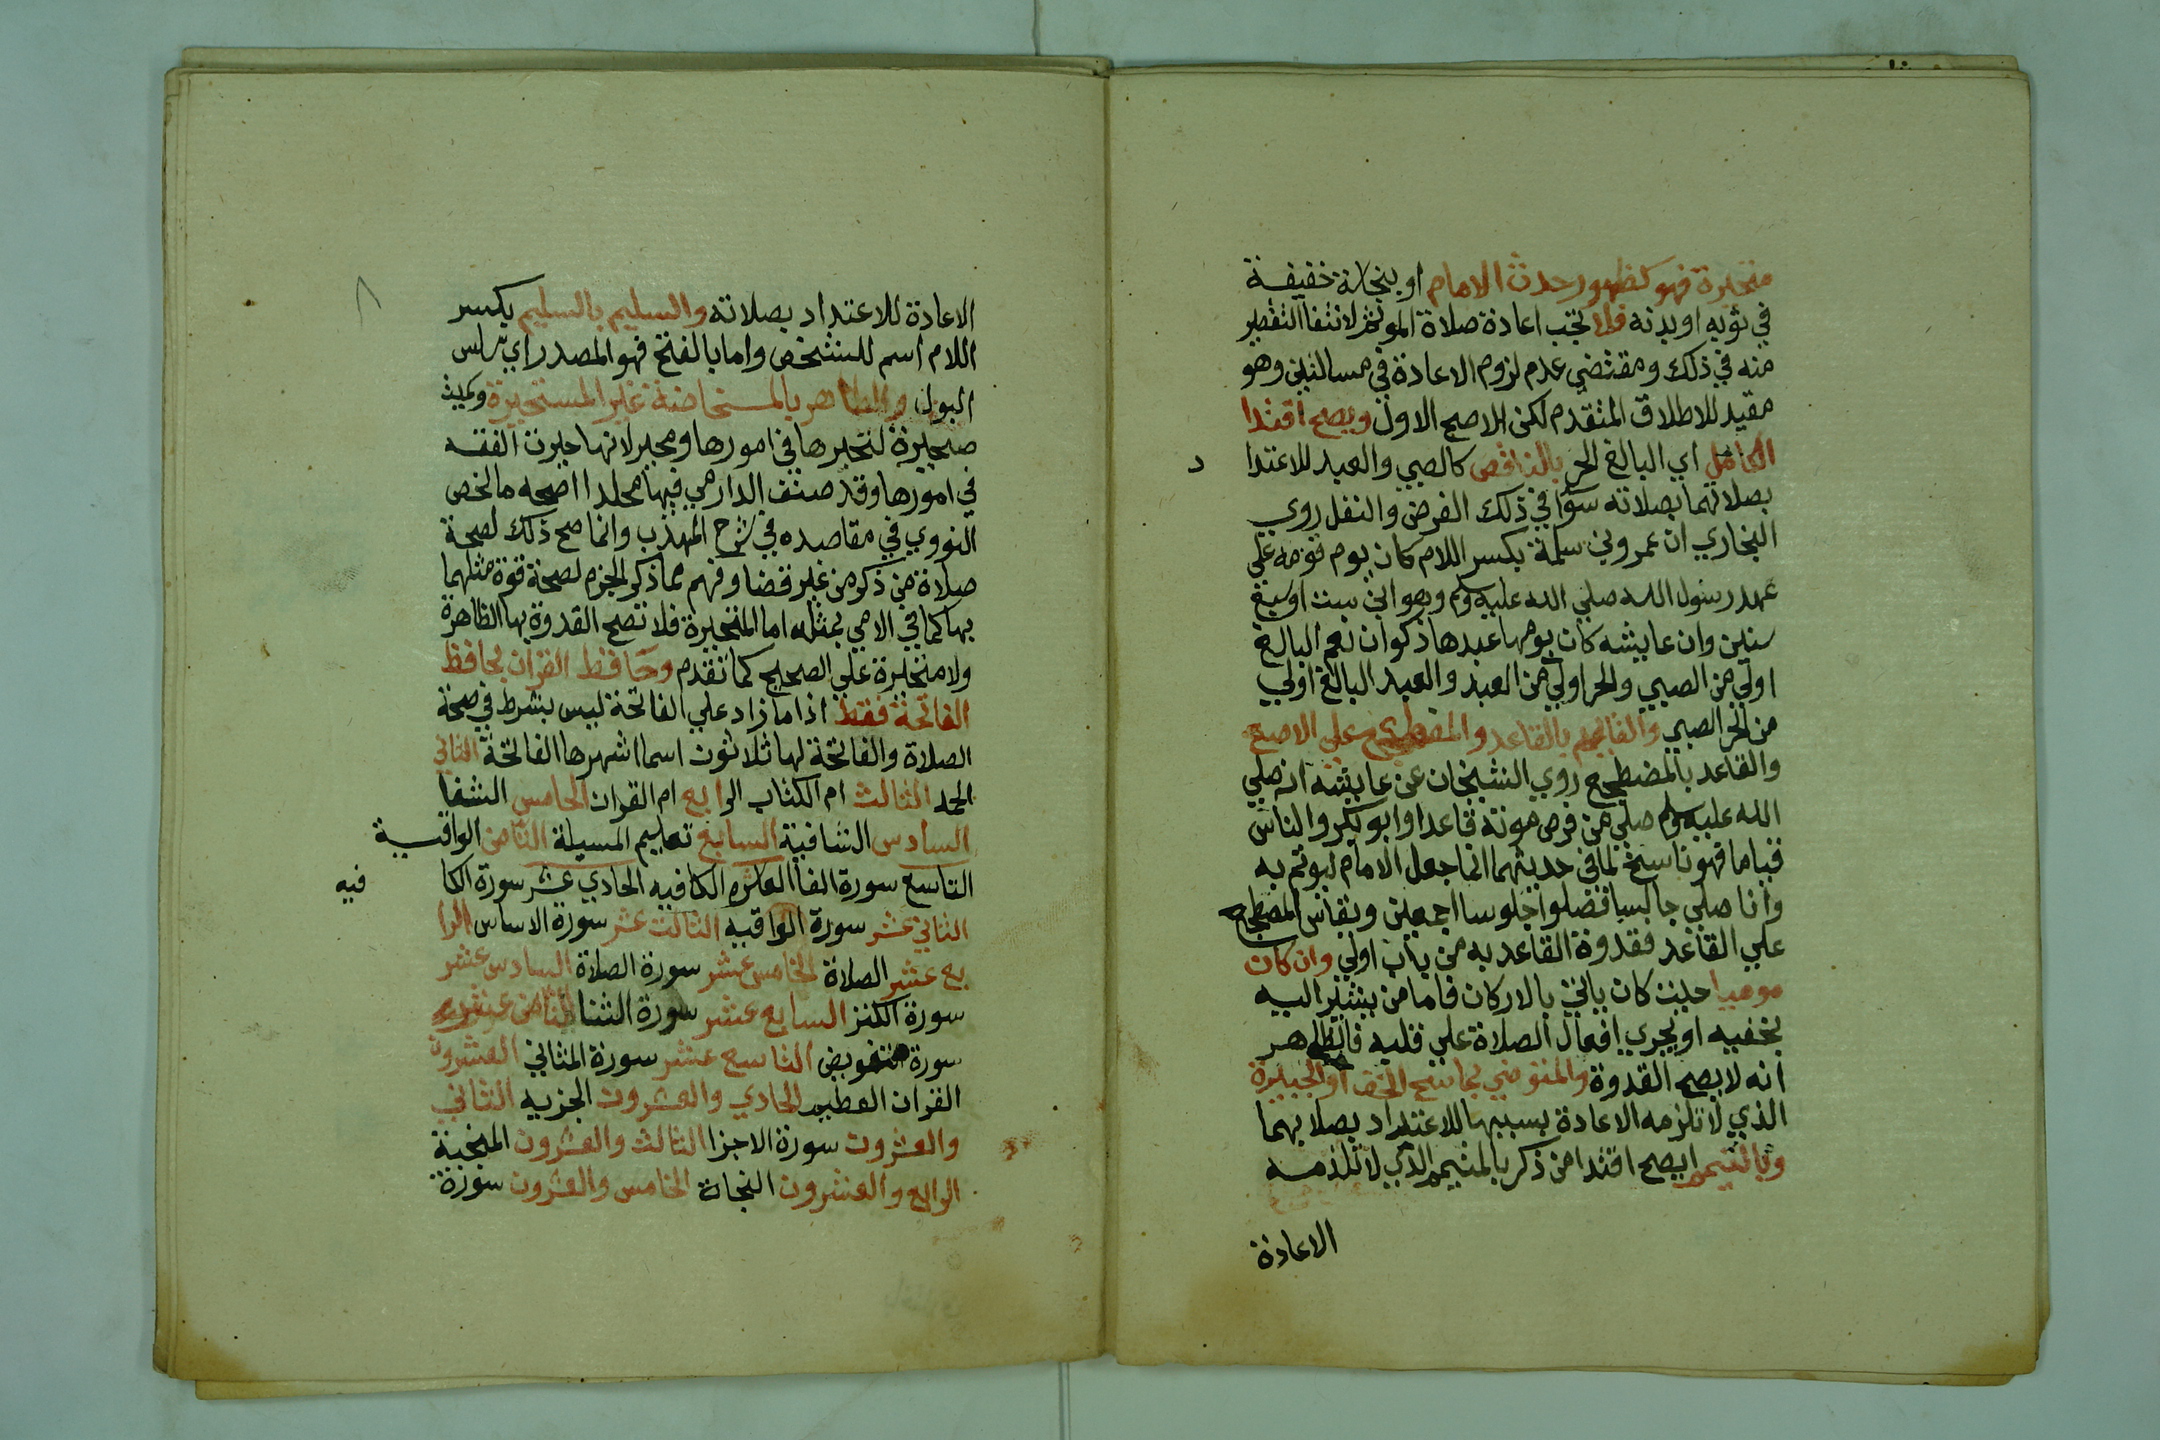 متحيرة فهو كظهور حدث الامام او بنجاسة خفيفة
في ثوبه او بدنه فلا تجب اعادة صلاة الموتم لانتفا التقصير
منه في ذلك ومقتضي عدم لزوم الاعادة في مسالتين وهو
مقيد للاطلاق المتقدم لكن الاصح الاول ويصح اقتدا
الكامل اي البالغ الحر بالناقص كالصبي والعبد للاعتدا د
بصلاتهما بصلاته سوا في ذلك الفرض والنفل روي
البخاري ان عمرو بن سلمة بكسر اللام كان يوم قومه علي
عهد رسول الله صلي الله عليه وسلم وهو ابن ست او سبع
سنين وان عايشه كان يومها عبدها ذكوان نعم البالغ
اولي من الصبي والحر اولي من العبد والعبد البالغ اولي
من الحر الصبي والقايم بالقاعد والمضطجع علي الاصح
والقاعد بالمضطجع روي الشيخان عن عايشه انه صلي
الله عليه وسلم صلي من فرض موته قاعدا وابو بكر والناس
قياما فهو ناسخ لما في حديثهما انما جعل الامام ليوتم به
واذا صلي جالسا فصلوا جلوسا اجمعين ويقاس المضطجع
علي القاعد فقدوة القاعد به من باب اولي وان كان
موميا حيث كان ياتي بالاركان فاما من يشير اليه
بخفيه او يجري افعال الصلاة علي قلبه فالظاهر
انه لا يصح القدوة والمتوضي بماسح الخف او الجبيرة
الذي لا تلزمه الاعادة بسببها للاعتداد بصلابهما
وبالتيمم ايصح اقتدا من ذكر بالمتيمم الذي لا تلزمه
الاعادة
الاعادة للاعتداد بصلاته والسليم بالسليم بكسر
اللام اسم للشخص واما بالفتح فهو المصدر اي سلس
البول والطاهر بالمستحاضة غير المستحيرة وسميت
متحيرة لتحيرها في امورها ومحير لانها حيرت الفقه
في امورها وقد صنف الدارمي فيها مجلدا اصحه ما لخص
النووي في مقاصده في شرح المهذب وانما صح ذلك لصحة
صلاة من ذكر من غير قضا وفهم مما ذكر الجزم لصحة قوة مثلهما
بها كما في الامي بمثله اما المتحيرة فلا تصح القدوة بها الظاهرة
ولا متحيرة علي الصحيح كما تقدم وحافظ القران بحافظ
الفاتحة فقط اذ ما زاد علي الفاتحة ليس بشرط في صحة
الصلاة والفاتحة لها ثلاثون اسما اشهرها الفاتحة الثاني
الحمد الثالث ام الكتاب الرابع ام القران الخامس الشفا
السادس الشافية السابع تعليم المسيلة الثامن الواقية
التاسع سورة الفا العاشره الكافيه الحادي عشر سورة الكا فيه
الثاني عشر سورة الواقيه الثالث عشر سورة الاساس الرا
بع عشر الصلاة الخامس عشر سورة الصلاة السادس عشر
سورة الكنز السابع عشر سورة الثنا الثامن عشر
سورة تفويض التاسع عشر سورة المثاني العشرون
القران العظيم الحادي والعشرون الجزيه الثاني
والعشرون سورة الاجزا الثالث والعشرون المنجية
الرابع والعشرون النجاة الخامس والعشرون سورة